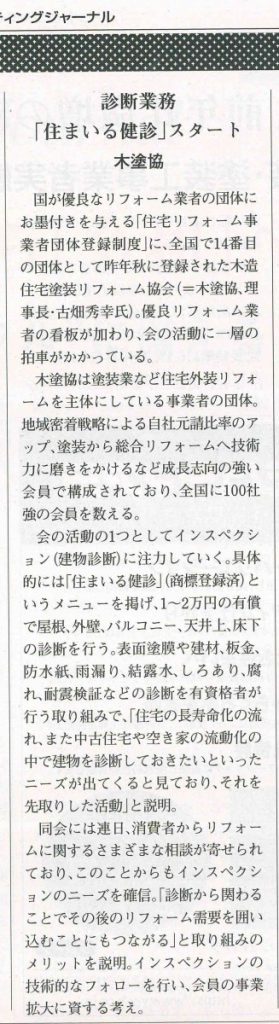 ティングジャーナル
診断業務
「住まいる健診」スタート
木塗協
国が優良なリフォーム業者の団体に
お墨付きを与える「住宅リフォーム事
業者団体登録制度」に、全国で14番目
の団体として昨年秋に登録された木造
住宅塗装リフォーム協会(＝木塗協、理
事長・古畑秀幸氏)。優良リフォーム業
者の看板が加わり、会の活動に一層の
拍車がかかっている。
木塗協は塗装業など住宅外装リフォ
ームを主体にしている事業者の団体。
地域密着戦略による自社元請比率のア
ップ、塗装から総合リフォームへ技術
力に磨きをかけるなど成長志向の強い
会員で構成されており、全国に100社
強の会員を数える。
会の活動の1つとしてインスペクシ
ョン(建物診断)に注力していく。具体
的には「住まいる健診」(商標登録済)と
いうメニューを掲げ、1～2万円の有償
で屋根、外壁、バルコニー、天井上、床下
の診断を行う。表面塗膜や建材、板金、
防水紙、雨漏り、結露水、しろあり、腐
れ、耐震検証などの診断を有資格者が
行う取り組みで、「住宅の長寿命化の流
れ、また中古住宅や空き家の流動化の
中で建物を診断しておきたいといった
ニーズが出てくると見ており、それを
先取りした活動」と説明。
同会には連日、消費者からリフォー
ムに関するさまざまな相談が寄せられ
ており、このことからもインスペクシ
ョンのニーズを確信。「診断から関わる
ことでその後のリフォーム需要を囲い
込むことにもつながる」と取り組みの
メリットを説明。インスペクションの
技術的なフォローを行い、会員の事業
拡大に資する考え。